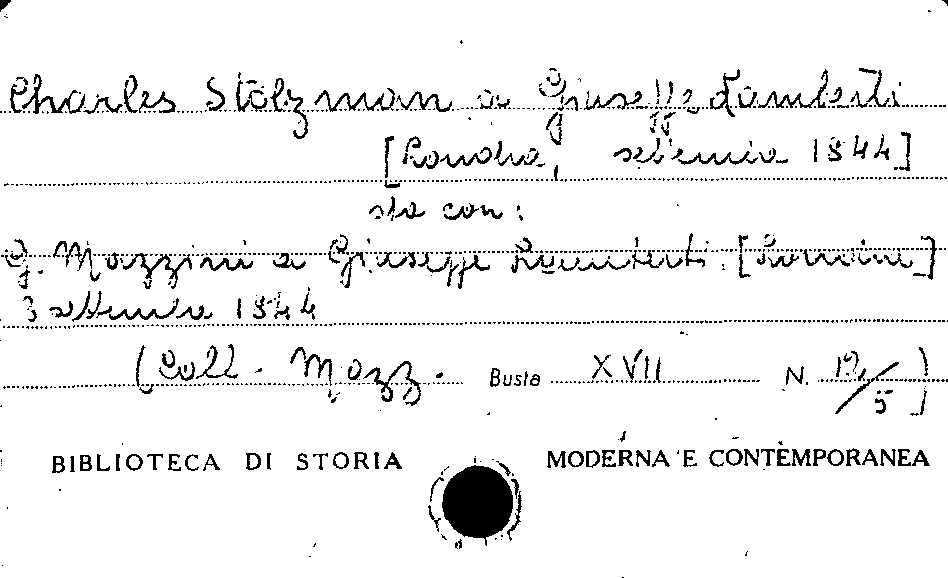 Charles Stolzman a Giuseppe Lamberti
[Londra, settembre 1844]
sta con:
G. Mazzini a Giuseppe Lamberti. [Londra]
3 settembre 1844
(Coll. Mazz. Busta XVII N. 19/5)
BIBLIOTECA DI STORIA MODERNA E CONTEMPORANEA